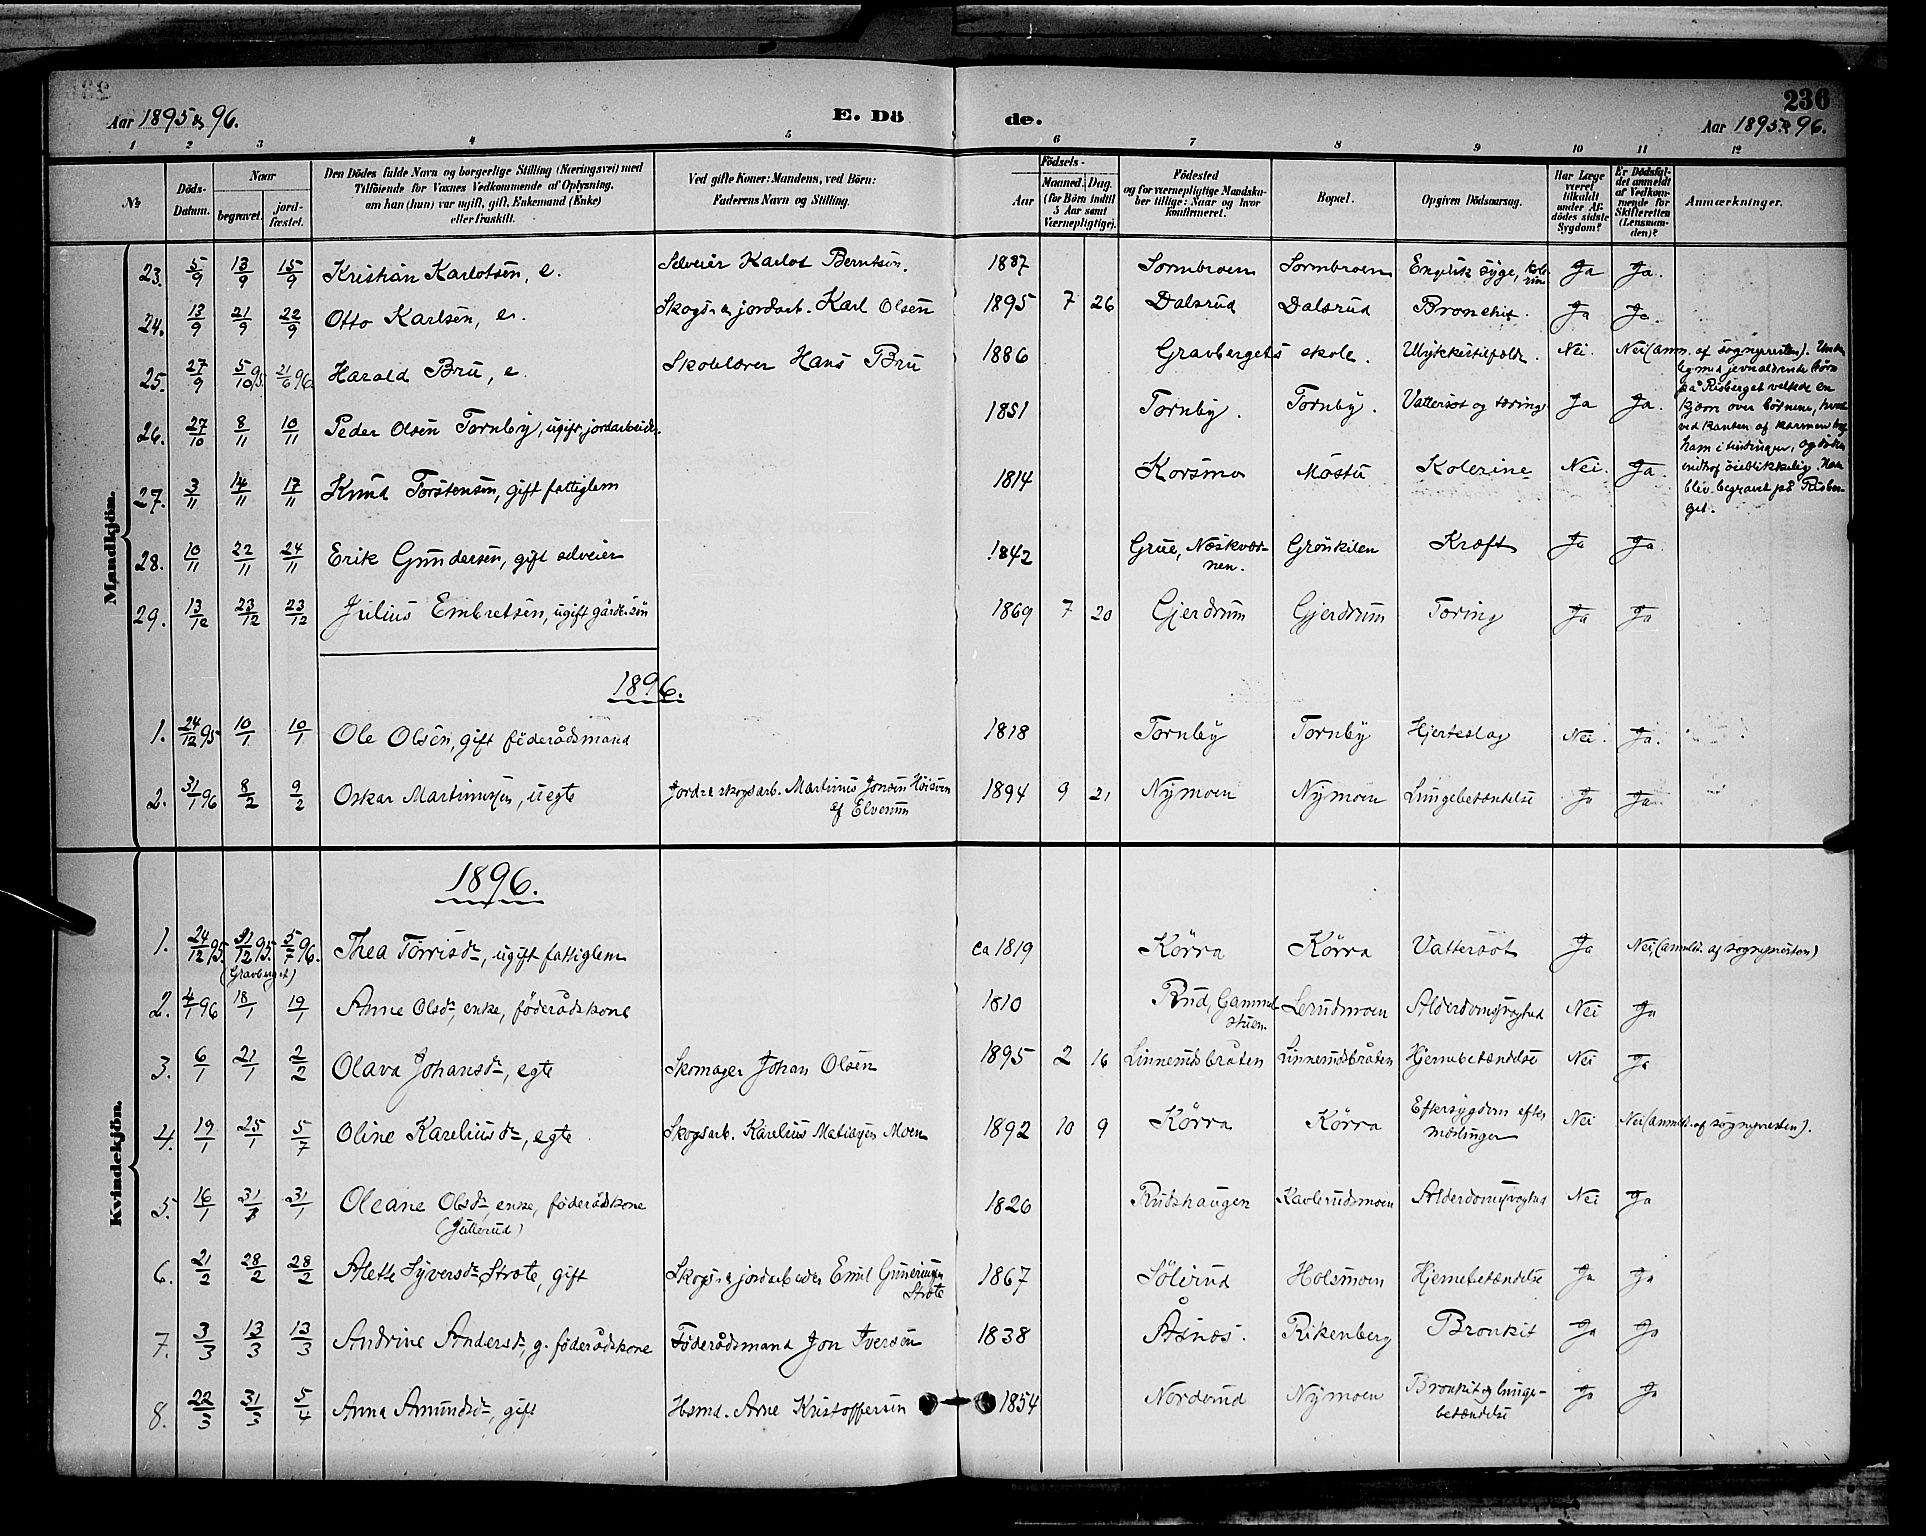 236
Aar 1895 & 96.
E. Dö
de.
Aar 1895 & 96.
1 2 3 4 5 6 7 8 9 10 11 12
№
Döds-Datum.
Naar
begravet.
jord-fæstet.
Den Dödes fulde Navn og borgerlige Stilling (Næringsvei) med
Tilföiende for Voxnes Vedkommende af Oplysning,
om han (hun) var ugift, gift, Enkemand (Enke)
eller fraskilt.
Ved gifte Koner: Mandens, ved Börn:
Faderens Navn og Stilling.
Födsels-
Aar
Maaned. Dag.
(for Börn indtil
5 Aar samt
Værnepligtige).
Födested
og for værnepligtige Mandska-
ber tillige: Naar og hvor
konfirmeret.
Bopæl.
Opgiven Dödsaarsag.
Har Læge
været
tilkaldt
under Af-
dödes sidste
Sygdom?
Er Dödsfal-
det anmeldt
af Vedkom-
mende for
Skifteretten
(Lensman-
den)?
Anmærkninger.
Mandkjön.
23. 5/9 13/9 15/9 Kristian Karlotsen, e. Selveier Karlot Berntsen. 1887 Sormbroen Sormbroen Engelsk syge, Ja Ja.
24. 13/9 21/9 22/9 Otto Karlsen, e. Skogs- & jordarb. Karl Olsen 1895 7 26 Dalsrud Dalsrud Bronchit. Ja Ja.
25. 27/9 5/10 95 21/6 96 Harald Bru, e. Skolelærer Hans Bru 1886 Gravbergets skole. Ulykkestilfælde. Nei. Nei (anm. af sognepresten). Under
leg med jevnaldrende börn
på Risberget veltede en
kjærre over börnene, hvor-
ved kanten af karmen
ham i tindingen, og döden
indtraf öieblikkelig. Han
blev begravet på Risber-
get.
26. 27/10 8/11 10/11 Peder Olsen Tornby, ugift jordarbeider. 1851 Tornby. Tornby. Vattersot og tæring. Ja Ja.
27. 3/11 14/11 17/11 Knud Torstensen, gift fattiglem 1814 Korsmo Mostu Kolerine Nei. Ja.
28. 10/11 22/11 24/11 Erik Gundersen, gift selveier 1842 Grue, Næskvær-
nen. Grönkilen Kræft Ja Ja.
29. 13/12 23/12 23/12 Julius Embretsen, ugift gårds.sön 1869 7 20 Gjerdrum Gjerdrum Tæring Ja Ja
1896.
1. 24/12 95 10/1 10/1 Ole Olsen, gift föderådsmand 1818 Tornby Tornby Hjerteslag Nei. Ja.
2. 31/1 96 8/2 9/2 Oskar Martinusen, uegte Jord- & skogsarb. Martinus Jonsen Höisven
af Elverum 1894 9 21 Nymoen Nymoen Lungebetændelse Ja Ja
Kvindekjön.
1896.
1. 24/12 95. 31/12 95. 5/7 96. Thea Torrisdr, ugift fattiglem ca 1819 Körra Körra Vattersot Ja Nei, (anmeldt. af sognepresten)
(Gravberget)
2. 4/1 96 18/1 19/1 Anne Olsdr, enke, föderådskone 1810 Rud, Gammel-
stuen Lerudmoen Alderdomssvaghed Nei Ja
3. 6/1 21/1 2/2 Olava Johansdr, egte Skomager Johan Olsen 1895 2 16 Linnerudsbråten Linnerudsbråten Hjernebetændelse Nei Ja
4. 19/1 25/1 5/7 Oline Kareliusdr, egte Skogsarb. Karelius Matiasen Moen 1892 10 9 Körra Körra Eftersygdom efter
mæslinger Nei Nei (anmeldt. af sognepresten).
5. 16/1 31/1 31/1 Oleane Olsdr, enke, föderådskone
(Jutterud) 1826 Rudshaugen Kavlerudsmoen Alderdomssvaghed Nei Ja
6. 21/2 28/2 28/2 Alette Syversdr Strote, gift Skogs- & jordarbeider Emil Gunerius­en
Strote 1867 Sölerud Holsmoen Hjernebetændelse Ja Ja
7. 3/3 13/3 13/3 Andrine Andersdr, g. föderådskone Föderådsmand Jon Iversen 1838 Åsnes. Rikenberg Bronkit Ja Ja
8. 22/3 31/3 5/4 Anna Amundsdr, gift Hsmd. Arne Kristoffersen 1854 Norderud Nymoen Bronkit og lunge-
betændelse Ja Ja